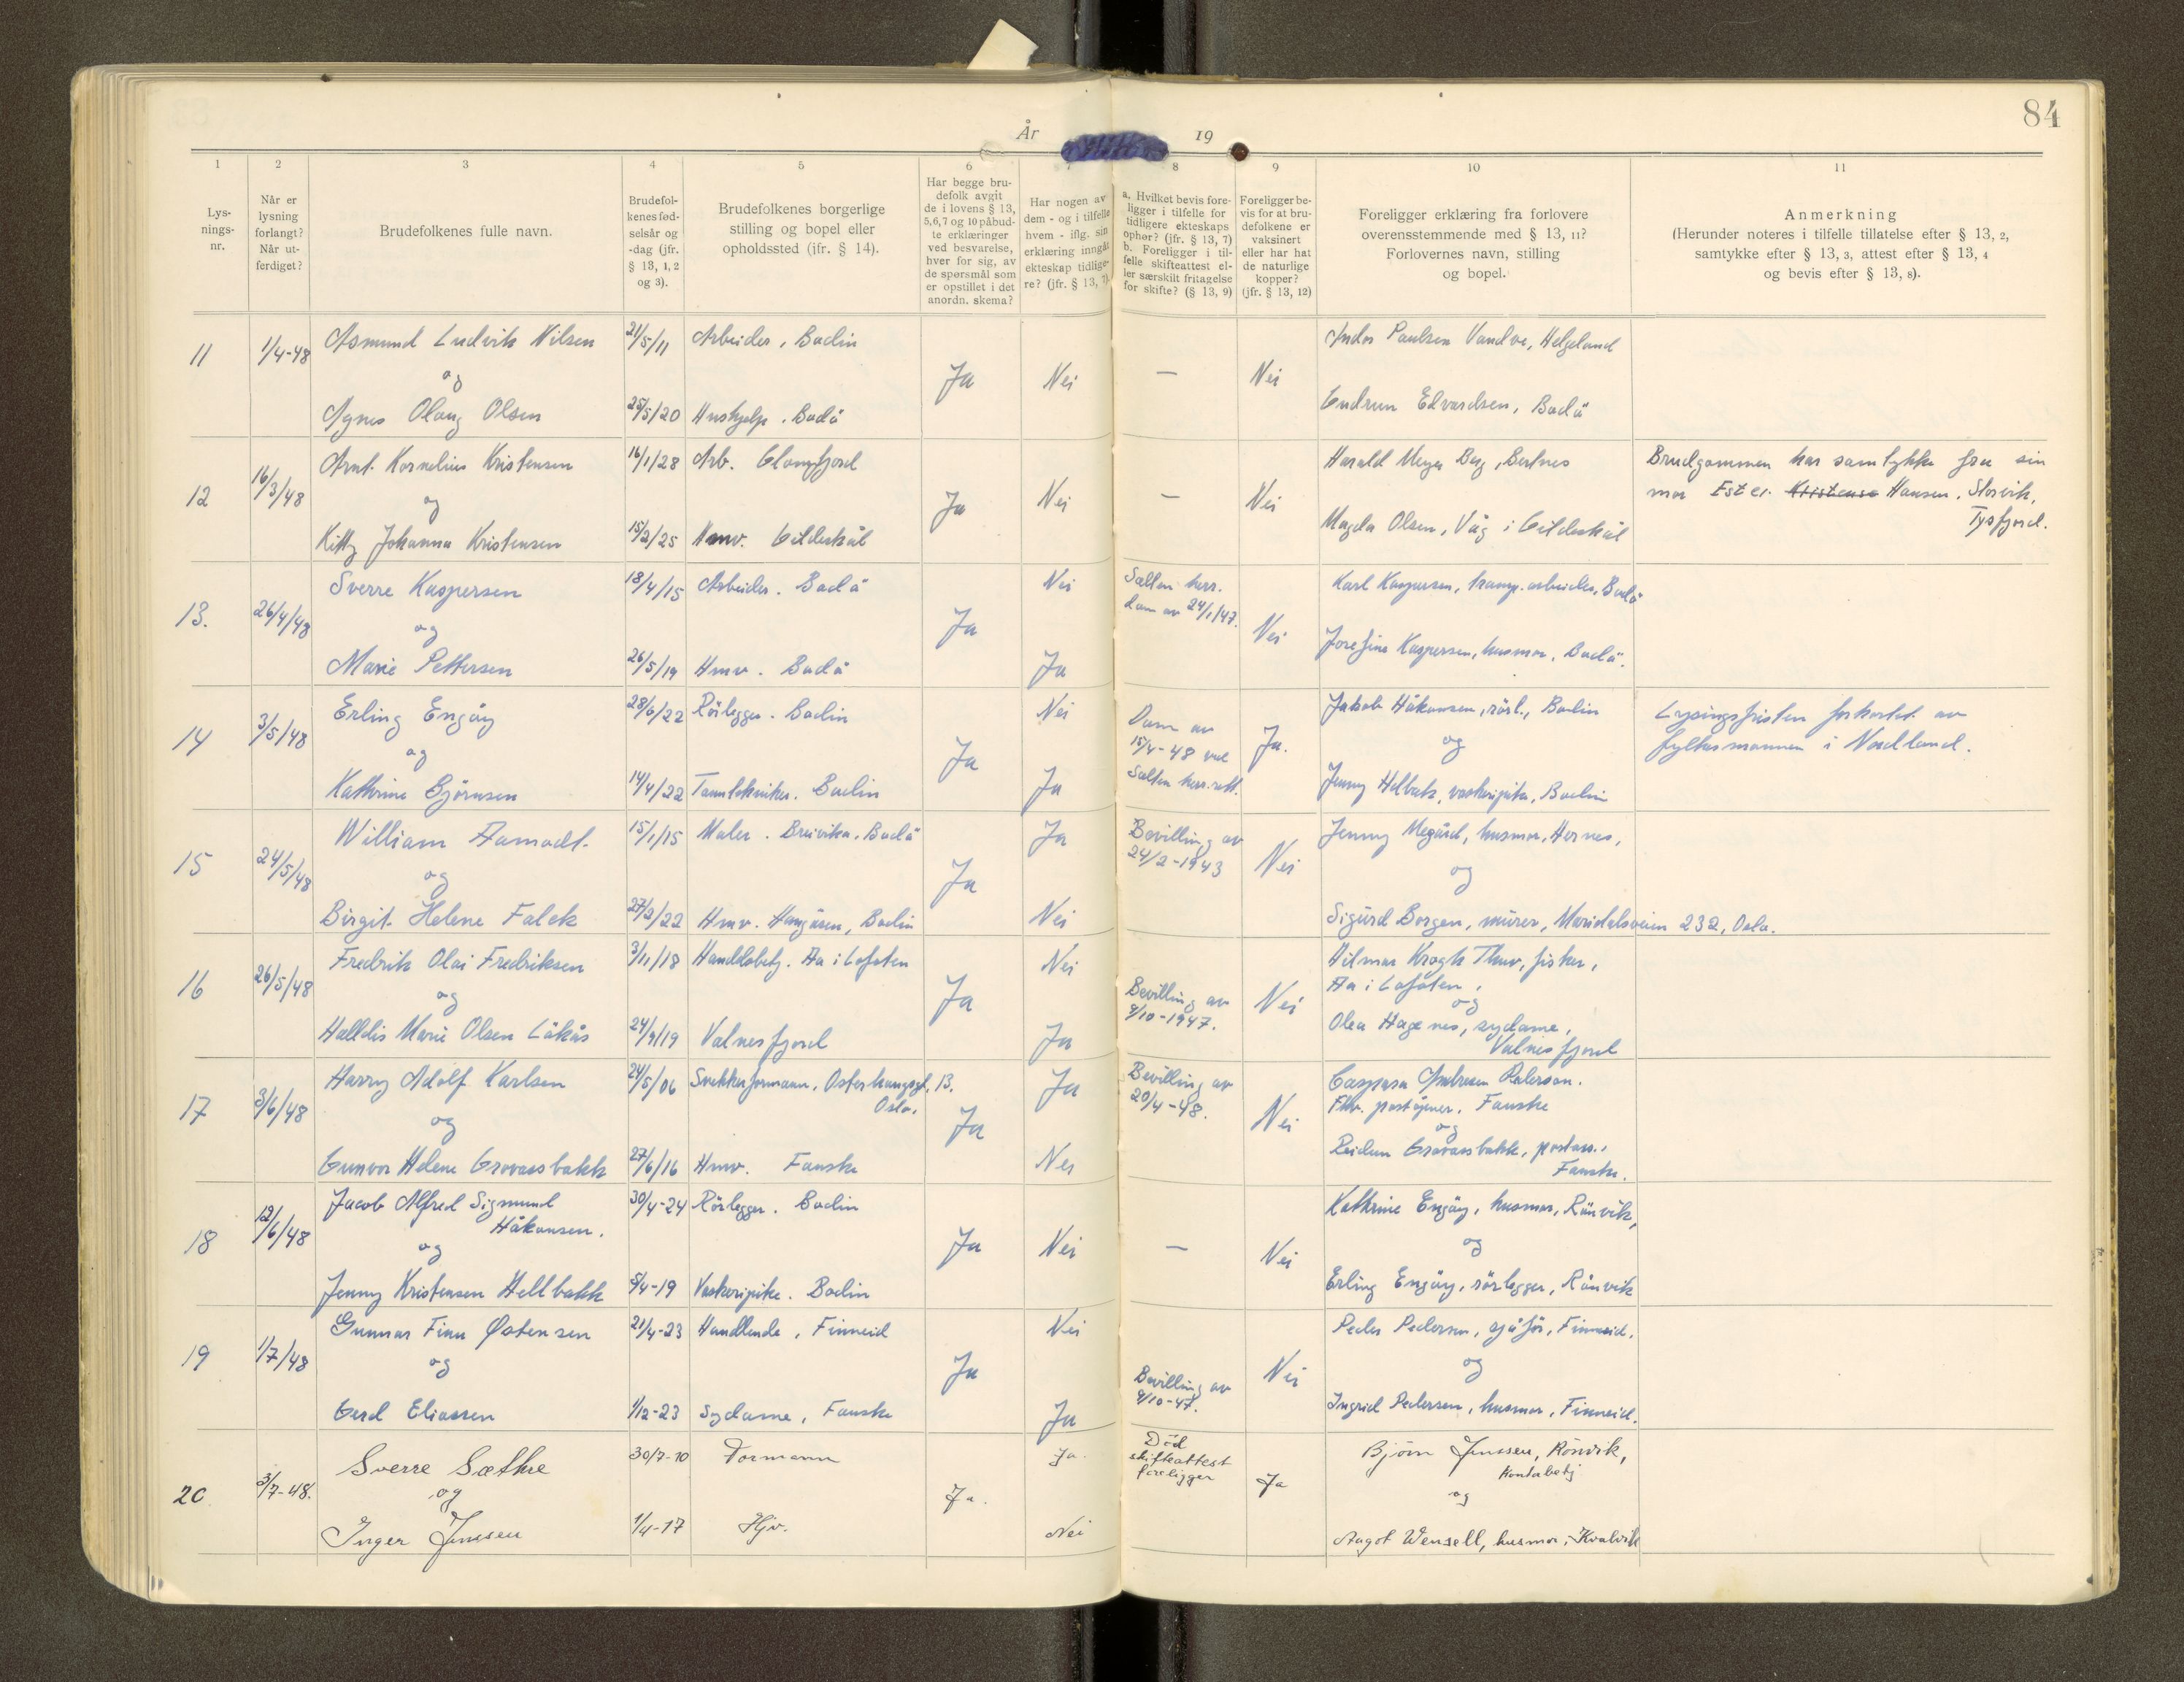 84
År
19
1
2
3
4
5
6
8
9
10
11
Lys-
nings-
nr.
Når er
lysning
forlangt?
Når ut-
ferdiget?
Brudefolkenes fulle navn.
Brudefol-
kenes fød-
selsår og
-dag (jfr.
§ 13, 1, 2
og 3).
Brudefolkenes borgerlige
stilling og bopel eller
opholdssted (jfr. § 14).
Har begge bru-
defolk avgit
de i lovens § 13,
5,6,7 og 10 påbud-
te erklæringer
ved besvarelse,
hver for sig, av
de spørsmål som
er opstillet i det
anordn. skema?
Har nogen av
dem - og i tilfelle
hvem - iflg. sin
erklæring inngåt
ekteskap tidlige-
re? (jfr. § 13, 7)
a. Hvilket bevis fore-
ligger i tilfelle for
tidligere ekteskaps
ophør? (jfr. § 13, 7)
b. Foreligger i til-
felle skifteattest el-
ler særskilt fritagelse
for skifte? (§ 13, 9)
Foreligger be-
vis for at bru-
defolkene er
vaksinert
eller har hat
de naturlige
kopper?
(jfr. § 13, 12)
Foreligger erklæring fra forlovere
overensstemmende med § 13, 11?
Forlovernes navn, stilling
og bopel.
Anmerkning
(Herunder noteres i tilfelle tillatelse efter § 13, 2,
samtykke efter § 13, 3, attest efter § 13, 4
og bevis efter § 13, 8).
11
1/4-48
Asmund Ludvik Nilsen
og
Agnes Olaug Olsen
21/5/11
25/5/20
Arbeider, Bodin
Hushjelp. Bodø
Ja
Nei
—
Nei
Andor Paulsen Vandve, Helgeland
Gudrun Edvardsen, Bodø
12
16/3/48
Arnt Kornelius Kristensen
og
Kitty Johanna Kristensen
16/1/28
15/2/25
Arb. Glomfjord
Hmv. Gildeskål
Ja
Nei
—
Nei
Harald Meyer Berg, Bertnes
Magda Olsen, Våg i Gildeskål
Brudgommen har samtykke fra sin
mor Ester Kristense Hansen, Storvik,
Tysfjord.
13.
26/4/48
Sverre Kaspersen
og
Marie Pettersen
18/4/15
26/5/19
Arbeider. Bodø
Hmv. Bodø
Ja
Nei
Ja
Salten herr.
dom av 24/1/47.
Nei
Karl Kaspersen, transp. arbeider, Bodø
Josefine Kaspersen, husmor, Bodø.
14
3/5/48
Erling Engøy
og
Kathrine Bjørnsen
28/6/22
14/4/22
Rørlegger. Bodin
Tanntekniker. Bodin
Ja
Nei
Ja
Dom av
15/4-48 ved
Salten herr.rett.
Ja.
Jakob Håkonsen, rørl., Bodin
og
Jenny Helbakk, vaskeripike, Bodin
Lysingsfristen forkortet av
fylkesmannen i Nordland.
15
24/5/48
William Aamodt.
og
Birgit Helene Falck
15/1/15
27/2/22
Maler. Breivika, Bodø
Hmv. Haugåsen, Bodin
Ja
Ja
Nei
Bevilling av
24/2-1943
Nei
Jenny Megård, husmor, Hernes,
og
Sigurd Borgen, murer, Maridalsveien 232, Oslo.
16
26/5/48
Fredrik Olai Fredriksen
og
Halldis Marie Olsen Låkås
3/11/18
24/9/19
Handelsbetj. Aa i Lofoten
Valnesfjord
Ja
Nei
Ja
Bevilling av
9/10-1947.
Nei
Hilmar Krogh Thuv, fisker,
Aa i Lofoten,
og
Olea Hagenes, sydame,
Valnesfjord
17
3/6/48
Harry Adolf Karlsen
og
Gunvor Helene Grovassbakk
24/5/06
27/6/16
Snekkerformann, Osterhausgt. 13.
Oslo.
Hmv. Fauske
Ja
Ja
Nei
Bevilling av
20/4-48.
Nei
Fhv. poståpner, Fauske
og
Reidun Grovassbakk, postass.,
Fauske.
18
12/6/48
Jacob Alfred Sigmund
Håkonsen.
og
Jenny Kristensen Hellbakk
30/4-24
5/4-19
Rørlegger. Bodin
Vaskeripike. Bodin
Ja
Nei
—
Nei
Kathrine Engøy, husmor, Rønvik,
og
Erling Engøy, rørlegger, Rønvik
19
1/7/48
Gunnar Finn Østensen
og
Gerd Eliassen
21/4-23
1/12-23
Handlende, Finneid
Sydame, Fauske
Ja
Nei
Ja
Bevilling av
9/10-47.
Nei
Peder Pedersen, sjåfør, Finneid.
og
Ingrid Pedersen, husmor, Finneid.
20
3/7-48.
Sverre Sæthre
og
Inger Jenssen
30/7-10
1/4-17
Formann
Hjv.
Ja.
Ja.
Nei
Död
skifteattest
foreligger
Ja
Bjørn Jenssen, Rönvik,
Kontorbetj
og
Aagot Wensell, husmor, Kvalvik